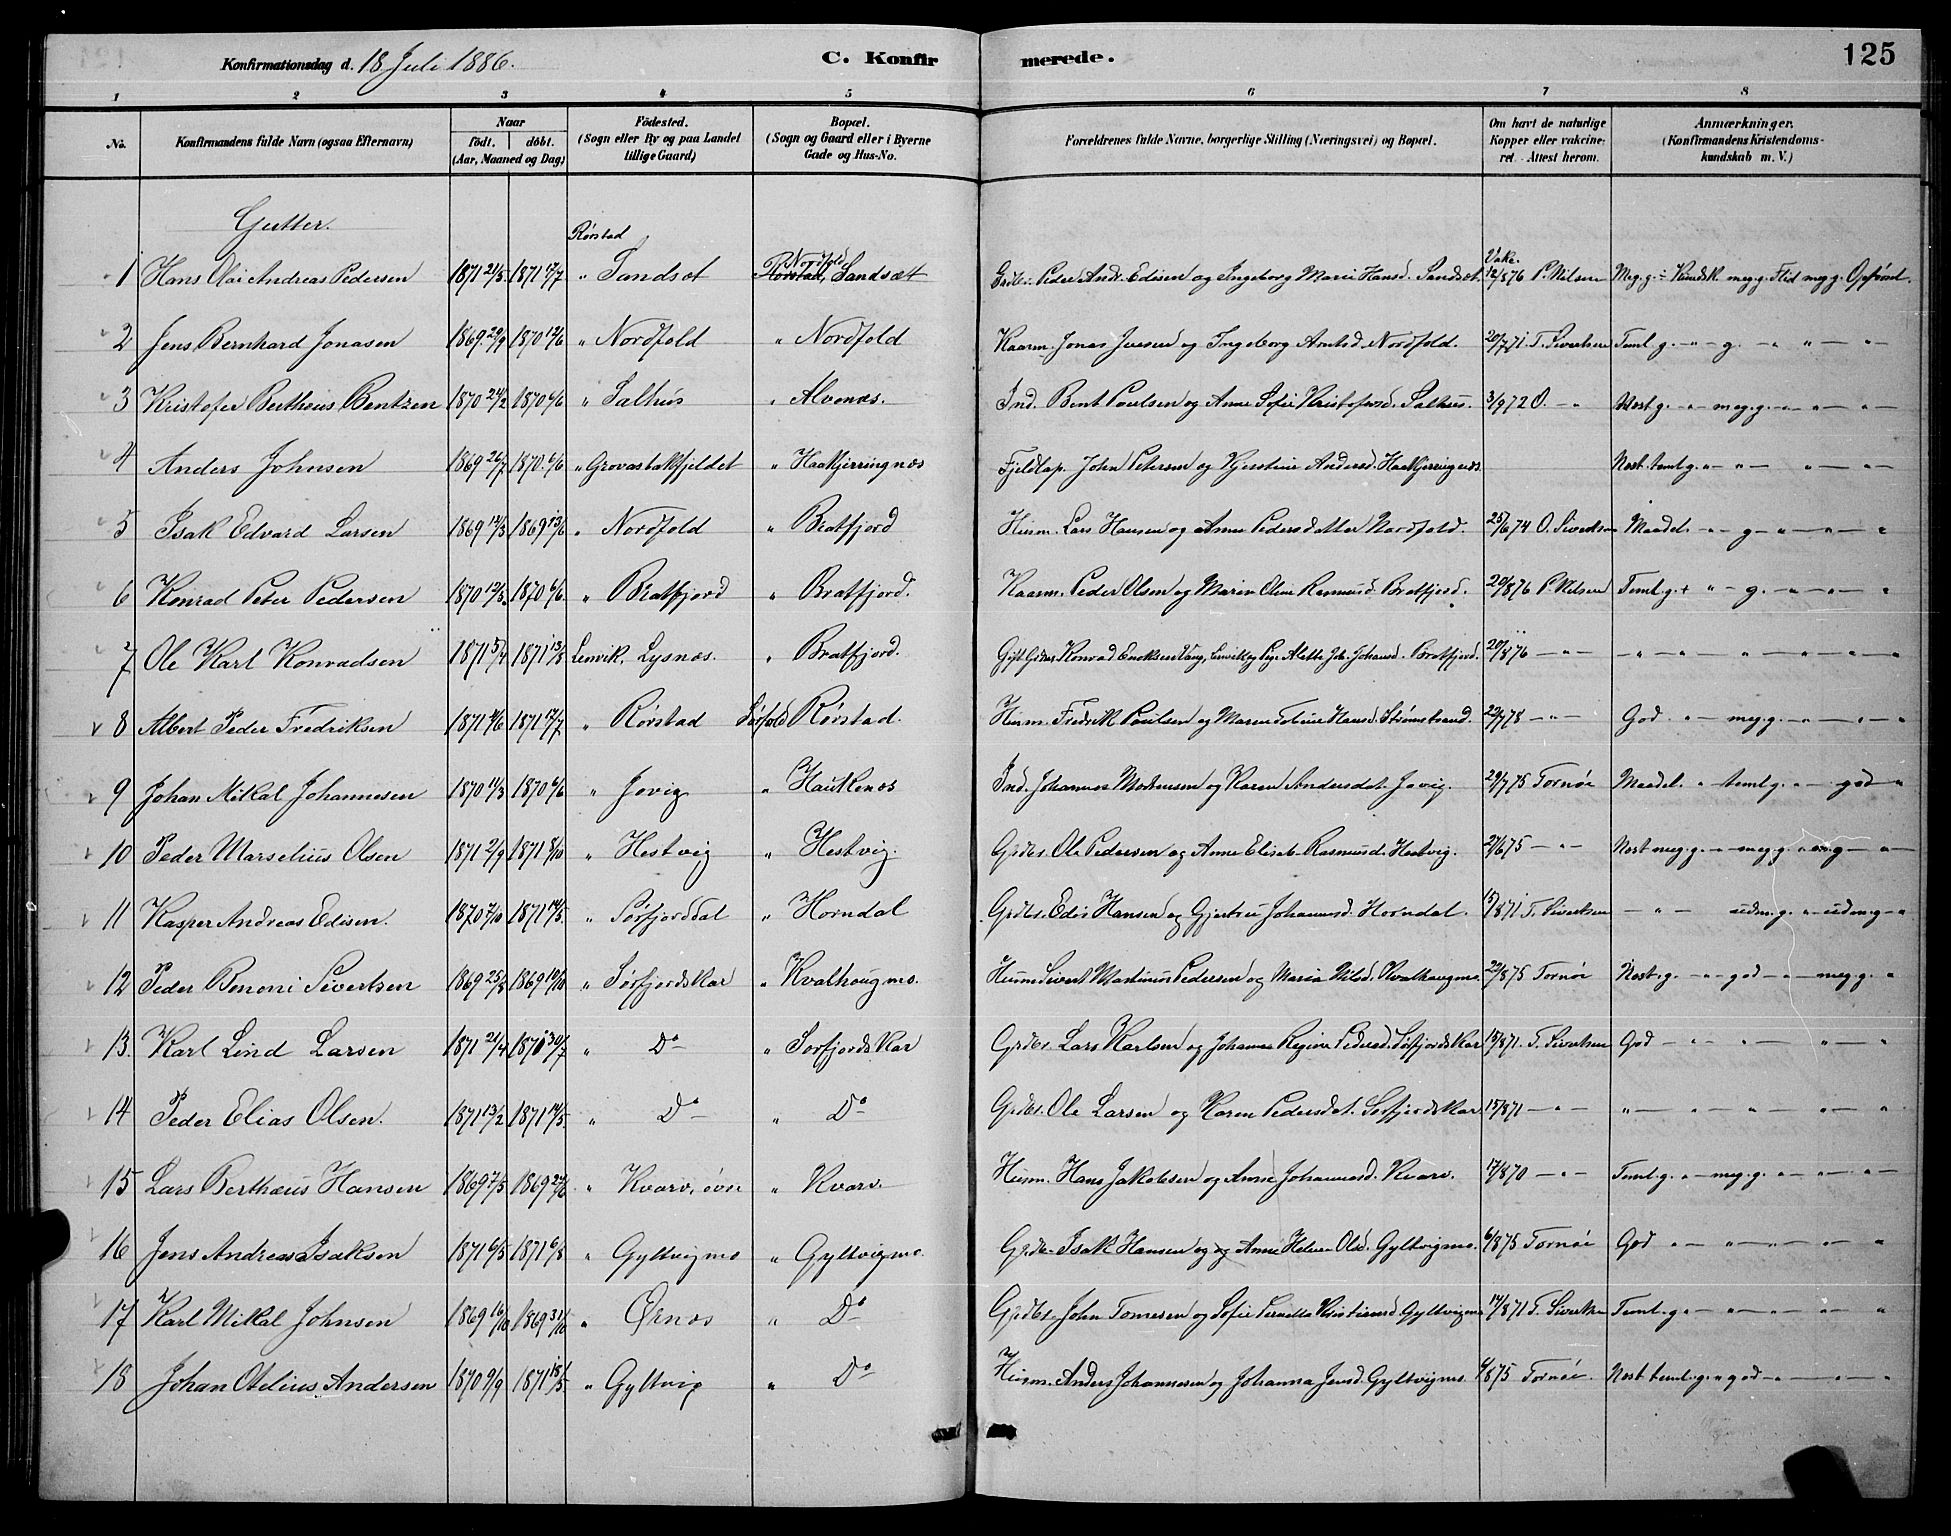 Konfirmationsdag d. 18 Juli 1886. C. Konfirmerede. 125
1 2 3 4 5 6 7 8
No. Konfirmandens fulde Navn (ogsaa Efternavn) Naar født. døbt. (Aar, Maaned og Dag) Fødested. (Sogn eller By og paa Landet tillige Gaard) Bopæl. (Sogn og Gaard eller i Byerne Gade og Hus-No. Forældrenes fulde Navne, borgerlige Stilling (Næringsvei) og Bopæl. Om havt de naturlige Kopper eller vakcineret. Attest herom. Anmærkninger. (Konfirmandens Kristendomskundskab m. V.)
Gutter.
1 Hans Olai Andreas Pedersen 1871 21/5 1871 17/7 Rørstad " Sandsæt Nordfold, Sandsæt Grdbr. Peder Andr. Edisen og Ingeborg Marie Hansd. Sandsæt. Vakc. 12/8 76 P. Nilsen Meg. g. Kundsk. meg. g. Flid meg g. Opførsel.
2 Jens Bernhard Jonasen 1869 29/9 1870 12/6 " Nordfold " Nordfold Kaarm. Jonas Ivesen og Ingeborg Arntsd. Nordfold. 20/7 71 T. Sivertsen Teml. g. " g. " " "
3 Kristofer Bertheus Bentzen 1870 24/2 1870 6/6 " Salhus " Alvenæs. Ind. Bent Poulsen og Anne Sofie Kristofersd. Salhus. 3/9 72 O. " Næst g. " meg. g. " " "
4 Anders Johnsen 1869 26/7 1870 6/6 " Grovasbakfjeldet " Haakjerringnæs Fjeldlap. John Petersen og Kjerstine Andersd. Haakjerringnæs. Næst teml. g. " " " "
5 Isak Edvard Larsen 1869 14/3 1869 13/6 " Nordfold " Bratfjord Husm. Lars Hansen og Anne Pedersdatter Nordfold. 25/6 74 O. Sivertsen Maadel. " g " " "
6 Konrad Peter Pedersen 1870 12/3 1870 6/6 " Bratfjord " Bratfjord. Kaarm. Peder Olsen og Maren Oline Rasmusd. Bratfjord. 20/8 76 P. Nilsen Teml. g. + " g. " " "
7 Ole Karl Konradsen 1871 5/4 1871 13/8 Lenvik, Lysnæs. " Bratfjord. Konrad Enoksen Alette Joh. Johansd. Bratfjord. 20/8 76 " " " " " " "
8 Albert Peder Fredriksen 1871 4/6 1871 17/7 " Rørstad Sørfold Rørstad. Husm. Fredrik Poulsen og Maren Toline Hansd. Strømstrand. 22/7 78 " God " meg. g. " " "
9 Johan Mikal Johannesen 1870 11/3 1870 6/6 " Jovig " Haukenæs Ind. Johannes Mortensen og Karen Andersdat. Jovig. 29/7 75 Tornøe Maadel. " teml. g. " god "
10 Peder Marselius Olsen 1871 2/9 1871 8/10 " Hestvig " Hestvig. Grdbr. Ole Pedersen og Anne Elisab. Rasmusd. Hestvig. 27/6 75 " Næst meg. g. " meg. g. " "
11 Kasper Andreas Edisen. 1870 7/10 1871 14/5 " Sørfjorddal " Horndal Grdbr. Edis Hansen og Gjertru Johannesd. Horndal. 15/8 71 T. Sivertsen " udm. g. " udm. g. "
12 Peder Benoni Sivertsen 1869 25/8 1869 10/10 " Sørfjordskar " Kvalhaugmo. Husm. Sivert Martinus Pedersen og Maria Nilsd. Kvalhaugmo. 22/8 75 Tornøe Næst. g. " god " meg. g. "
13. Karl Lind Larsen 1871 21/4 1871 30/7 " Do " Sørfjordskar Grdbr. Lars Karlsen og Johanna Regine Pedersd. Sørfjordskar 15/8 71. T. Sivertsen God " " " "
14 Peder Elias Olsen. 1871 13/2 1871 14/5 " Do " Do Grdbr. Ole Larsen og Karen Pedersdat. Sørfjordskar 15/8 71 " " " " " "
15 Lars Bertheus Hansen 1869 7/5 1869 27/6 " Kvarv, øvre " Kvarv. Husm. Hans Jakobsen og Anne Johannesd. Kvarv. 17/8 70 " Teml. g. " meg. g. " " "
16 Jens Andreas Isaksen 1871 6/5 1871 6/8 " Gyltvigmo " Gyltvigmo. Grdbr. Isak Hansen og og Anne Helene Olsd. Gyltvigmo. 6/8 75 Tornøe God " " " " "
17 Karl Mikal Johnsen 1869 16/10 1869 31/10 " Ørnæs " Do Grdbr. John Tomesen og Sofie Kristiansd. Gyltvigmo 14/8 71 T. Sivertsen Teml. g. " " " " "
18 Johan Otelius Andersen 1870 9/9 1871 18/5 " Gyltvig " Do Husm. Anders Johannesen og Johanna Jensd. Gyltvigmo. 4/8 75 Tornøe. Næst teml. g. " god " " "